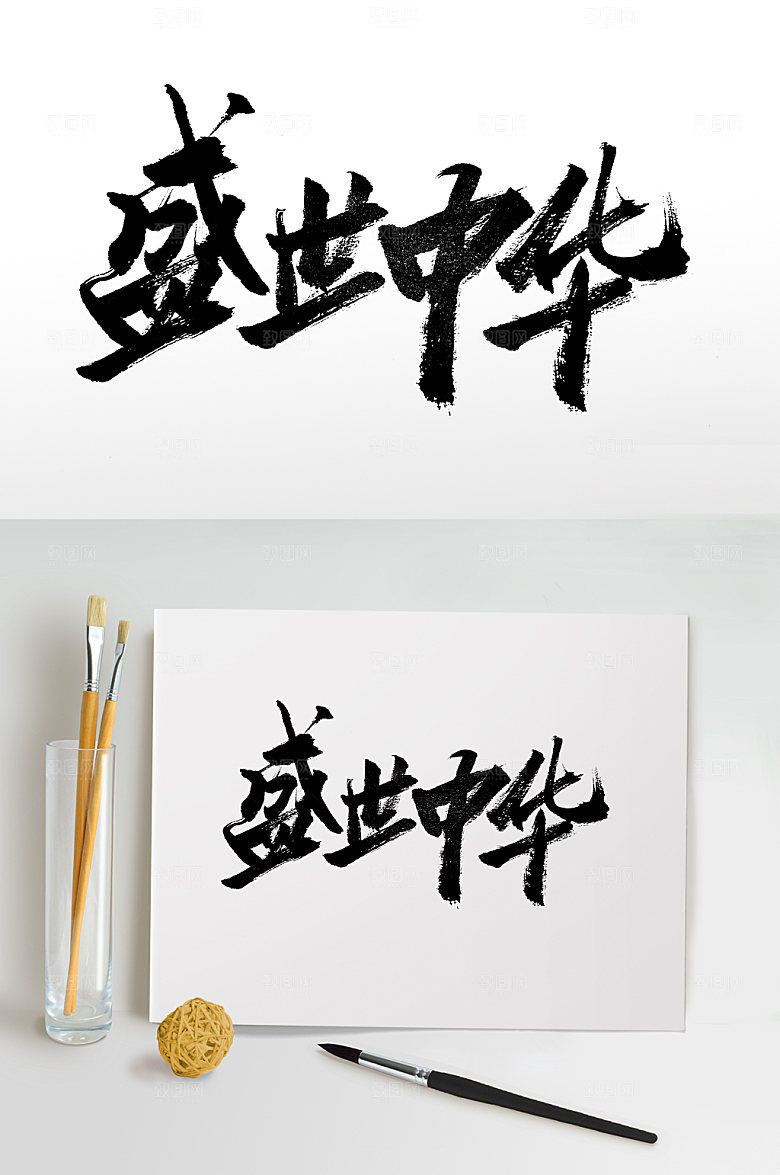 盛世中华
盛世中华